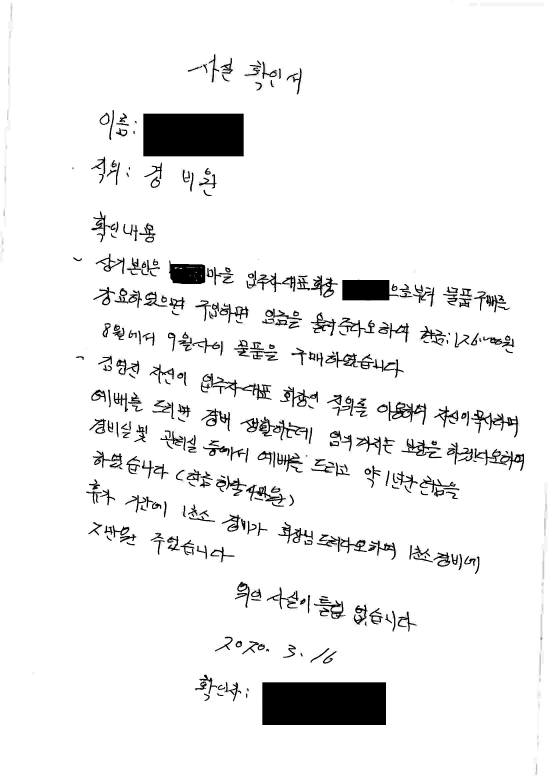 사실 확인서
이름:
직위: 경비원
확인내용
- 상기 본인은 마을 입주자대표회장 으로부터 물품구매를
강요하였으면 구입하면 임금을 올려준다오하여 현금:126,000원
8월에서 9월사이 물품을 구매하였습니다
- 자신이 입주자대표 회장인 직위를 이용하여 자신이목사라며
예배를 드리면 경비 생활하는데 보람을 하겠다오하며
경비실 및 관리실 등에서 예배를 드리고 약 1년간 헌금을
하였습니다 (헌금 한달 4만원)
휴가 기간에 1초소 경비가 회장님 드리다오하며 1초소 경비에
5만원 주었습니다
위의 사실이 틀림 없습니다
2020. 3. 16
확인자: